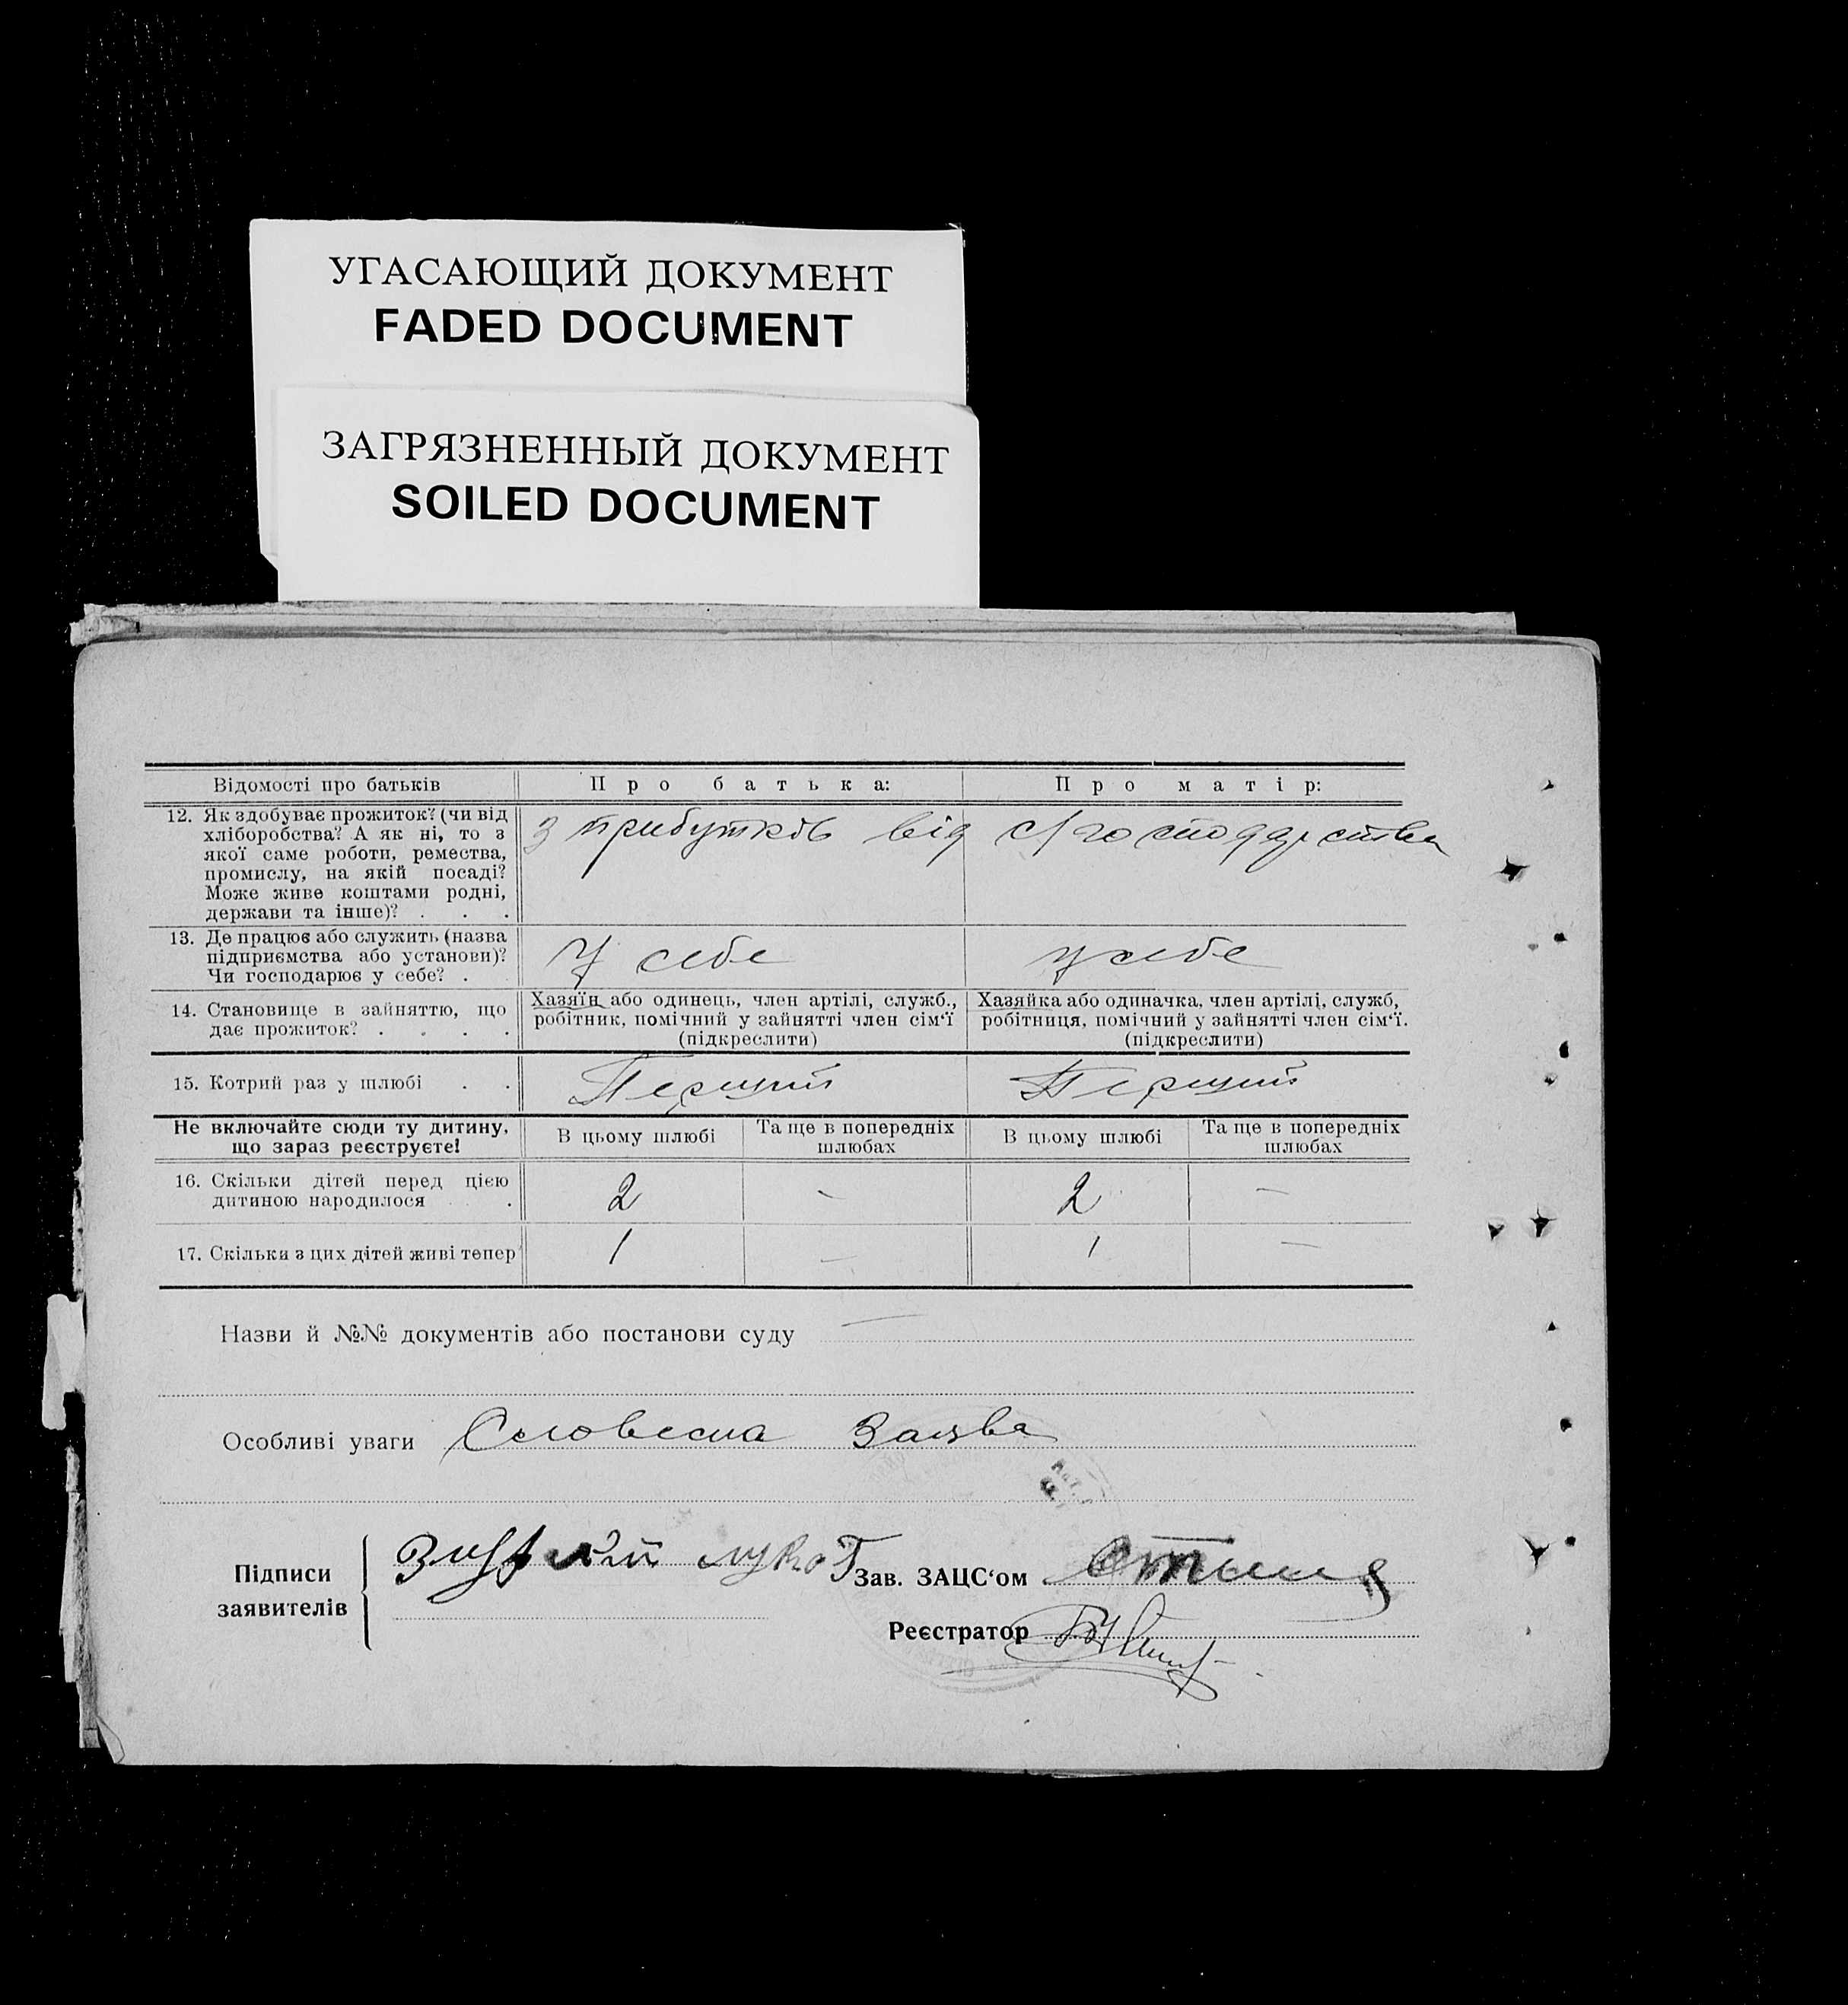 УГАСАЮЩИЙ ДОКУМЕНТ
FADED DOCUMENT
ЗАГРЯЗНЕННЫЙ ДОКУМЕНТ
SOILED DOCUMENT
Відомості про батьків Про батька: Про матір:
12. Як здобуває прожиток? (чи від
хліборобства? А як ні, то з
якої саме роботи, ремества,
промислу, на якій посаді?
Може живе коштами родні,
держави та інше)? . . .
З прибутків від с/господарства
13. Де працює або служить (назва
підприємства або установи)?
Чи господарює у себе? .
У себе у себе
14. Становище в зайняттю, що
дає прожиток? . . . .
Хазяїн або одинець, член артілі, служб.,
робітник, помічний у зайнятті член сім'ї
(підкреслити)
Хазяйка або одиначка, член артілі, служб,
робітниця, помічний у зайнятті член сім'ї.
(підкреслити)
15. Котрий раз у шлюбі . . Перший Перший
Не включайте сюди ту дитину,
що зараз реєструєте!
В цьому шлюбі
Та ще в попередніх
шлюбах
В цьому шлюбі
Та ще в попередніх
шлюбах
16. Скільки дітей перед цією
дитиною народилося .
2 — 2 —
17. Скільки з цих дітей живі тепер 1 — 1 —
Назви й №№ документів або постанови суду —
Особливі уваги Словесна Заява
Підписи
заявителів
Зав. ЗАЦС'ом
Реєстратор